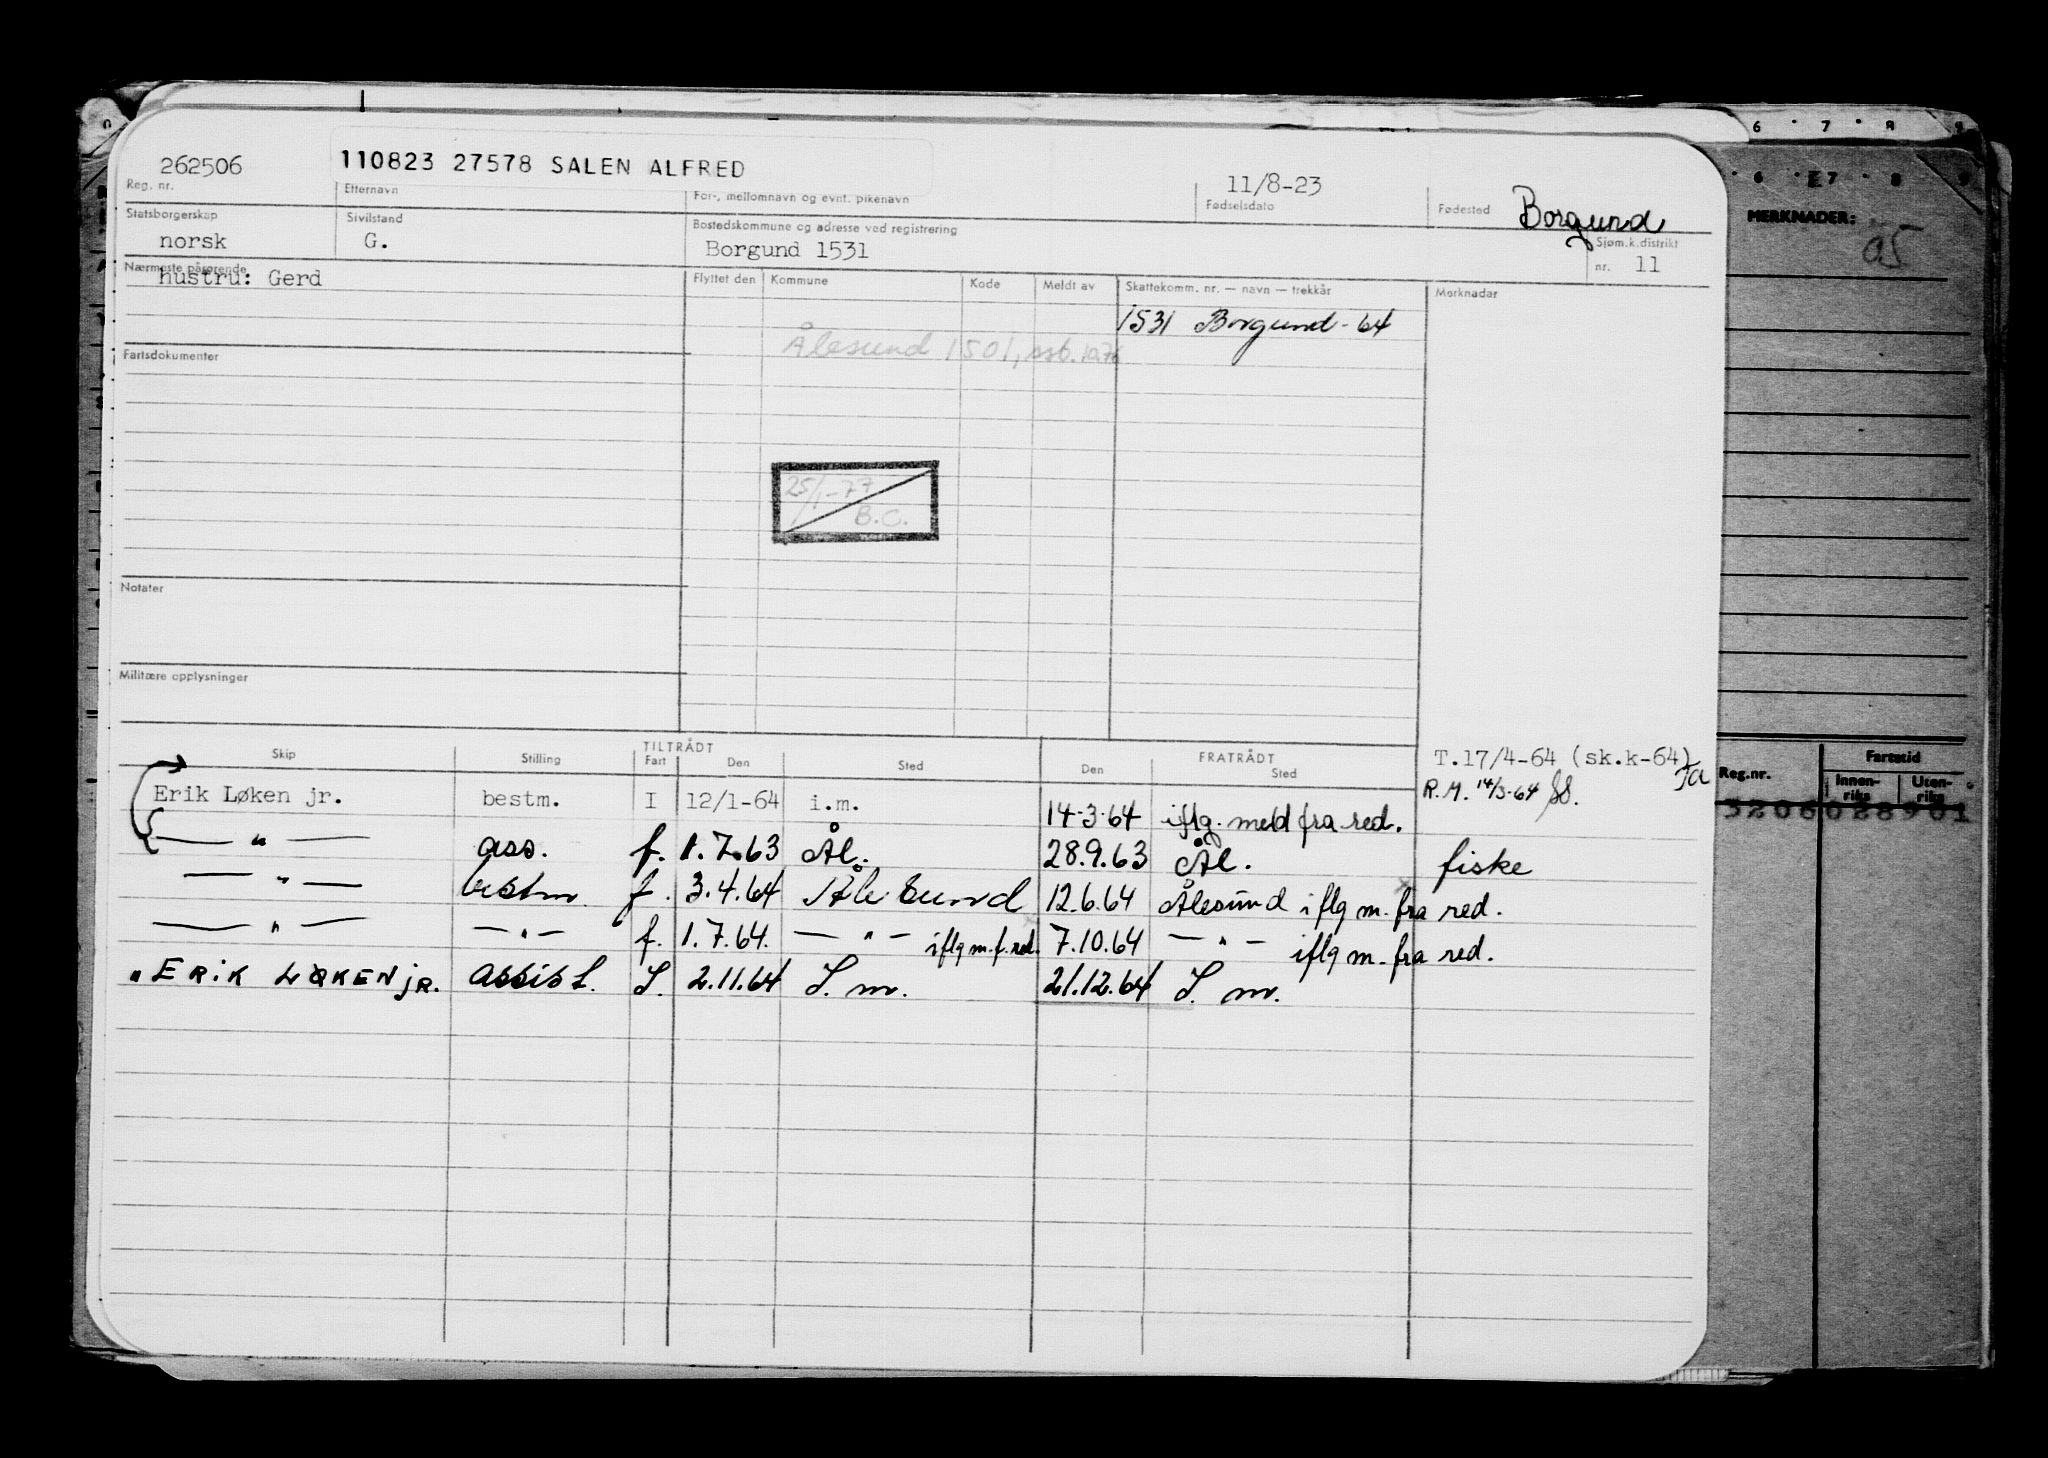 262506 110823 27578 SALEN ALFRED 11/8-23 Borgund
Reg. nr. Etternavn For-, mellomnavn og evnt. pikenavn Fødselsdato Fødested
Statsborgerskap Sivilstand Bostedskommune og adresse ved registrering Sjøm.k.distrikt
norsk G. Borgund 1531 nr. 11
Nærmeste pårørende Flyttet den Kommune Kode Meldt av Skattekomm. nr. — navn — trekkår Merknader
hustru: Gerd
1531 Borgund - 64
Ålesund 1501, ssb. 1976
Fartsdokumenter
25/1-77
B.C.
Notater
Militære opplysninger
TILTRÅDT FRATRÅDT
Skip Stilling Fart Den Sted Den Sted
T.17/4-64 (sk.k-64)
R.M. 14/3-64
Erik Løken jr. bestm. I 12/1-64 i.m. 14-3-64 iflg. meld fra red.
— " — ass. f. 1.7.63 Ål. 28.9.63 Ål. fiske
— " — bestm. f. 3.4.64 Ålesund 12.6.64 Ålesund iflg m. fra red.
— " — — " — f. 1.7.64. — " — iflg m. f. red. 7.10.64 — " — iflg m. fra red.
" ERIK LØKEN jR. assist. I. 2.11.64 I. m. 21.12.64 I. m.
6 7 8 9
6 E7 8 9
MERKNADER:
05
Reg.nr. Fartstid
Innen-riks Uten-riks
3206028901